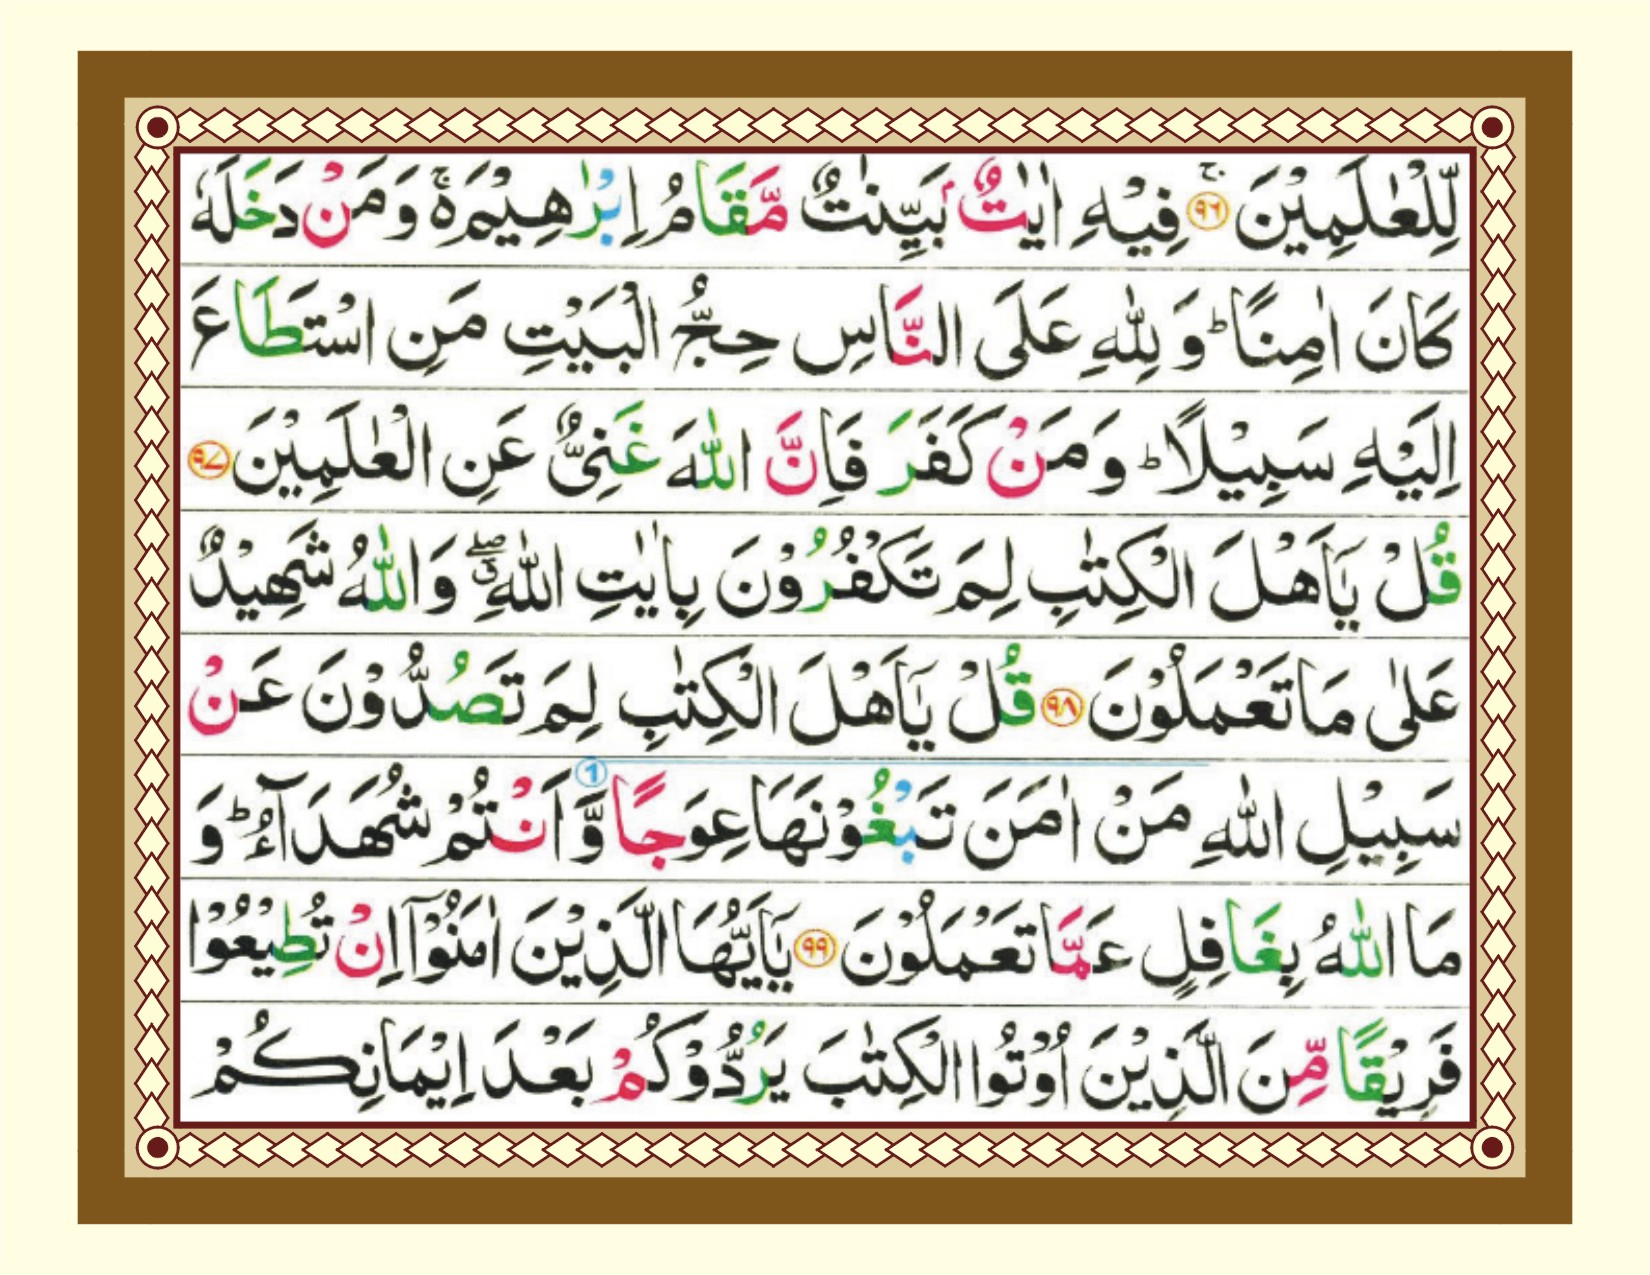 لِّلْعٰلَمِيْنَ ۚ ﴿۹۶﴾ فِيْهِ اٰيٰتٌۢ بَيِّنٰتٌ مَّقَامُ اِبْرٰهِيْمَ ۚ۬ وَمَنْ دَخَلَهٗ
كَانَ اٰمِنًا ؕ وَ لِلّٰهِ عَلَى النَّاسِ حِجُّ الْبَيْتِ مَنِ اسْتَطَاعَ
اِلَيْهِ سَبِيْلًا ؕ وَمَنْ كَفَرَ فَاِنَّ اللّٰهَ غَنِىٌّ عَنِ الْعٰلَمِيْنَ ﴿۹۷﴾
قُلْ يٰۤاَهْلَ الْكِتٰبِ لِمَ تَكْفُرُوْنَ بِاٰيٰتِ اللّٰهِ ۖۗ وَاللّٰهُ شَهِيْدٌ
عَلٰى مَا تَعْمَلُوْنَ ﴿۹۸﴾ قُلْ يٰۤاَهْلَ الْكِتٰبِ لِمَ تَصُدُّوْنَ عَنْ
سَبِيْلِ اللّٰهِ مَنْ اٰمَنَ تَبْغُوْنَهَا عِوَجًا وَّ اَنْتُمْ شُهَدَآءُ ؕ وَ
مَا اللّٰهُ بِغَافِلٍ عَمَّا تَعْمَلُوْنَ ﴿۹۹﴾ يٰۤاَيُّهَا الَّذِيْنَ اٰمَنُوْۤا اِنْ تُطِيْعُوْا
فَرِيْقًا مِّنَ الَّذِيْنَ اُوْتُوا الْكِتٰبَ يَرُدُّوْكُمْ بَعْدَ اِيْمَانِكُمْ